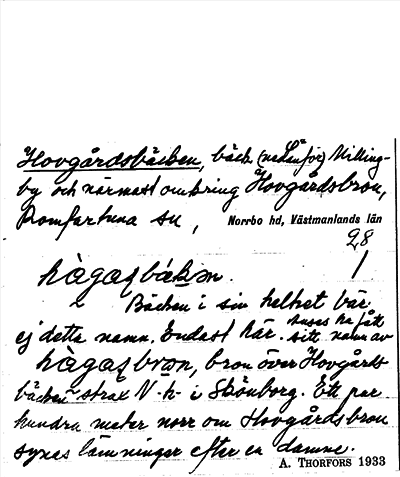 Hovgårdsbäcken, bäck (nedanför) Milling-
by och närmast omkring Hovgårdsbron,
Romfartuna sn, Norrbo hd, Västmanlands län
28
1
hàgasbäkm.
Bäcken i sin helhet bär
ej detta namn. Endast här. anses ha fått
sitt namn av
hàgasbron, bron över Hovgårds-
bäcken strax N. h. i Skönborg. Ett par
hundra meter norr om Hovgårdsbron
synas lämningar efter en damm.
A. THORFORS 1933